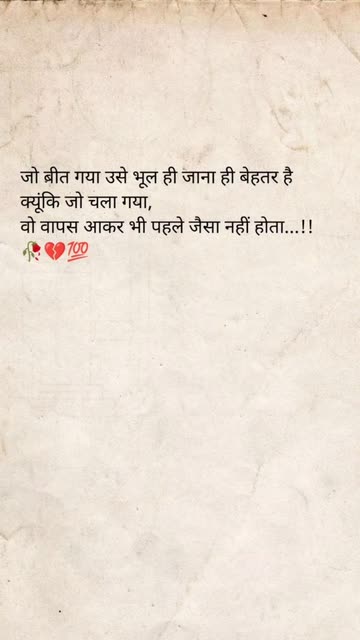 जो बीत गया उसे भूल ही जाना ही बेहतर है
क्यूंकि जो चला गया,
वो वापस आकर भी पहले जैसा नहीं होता...!!
🥀💔💯